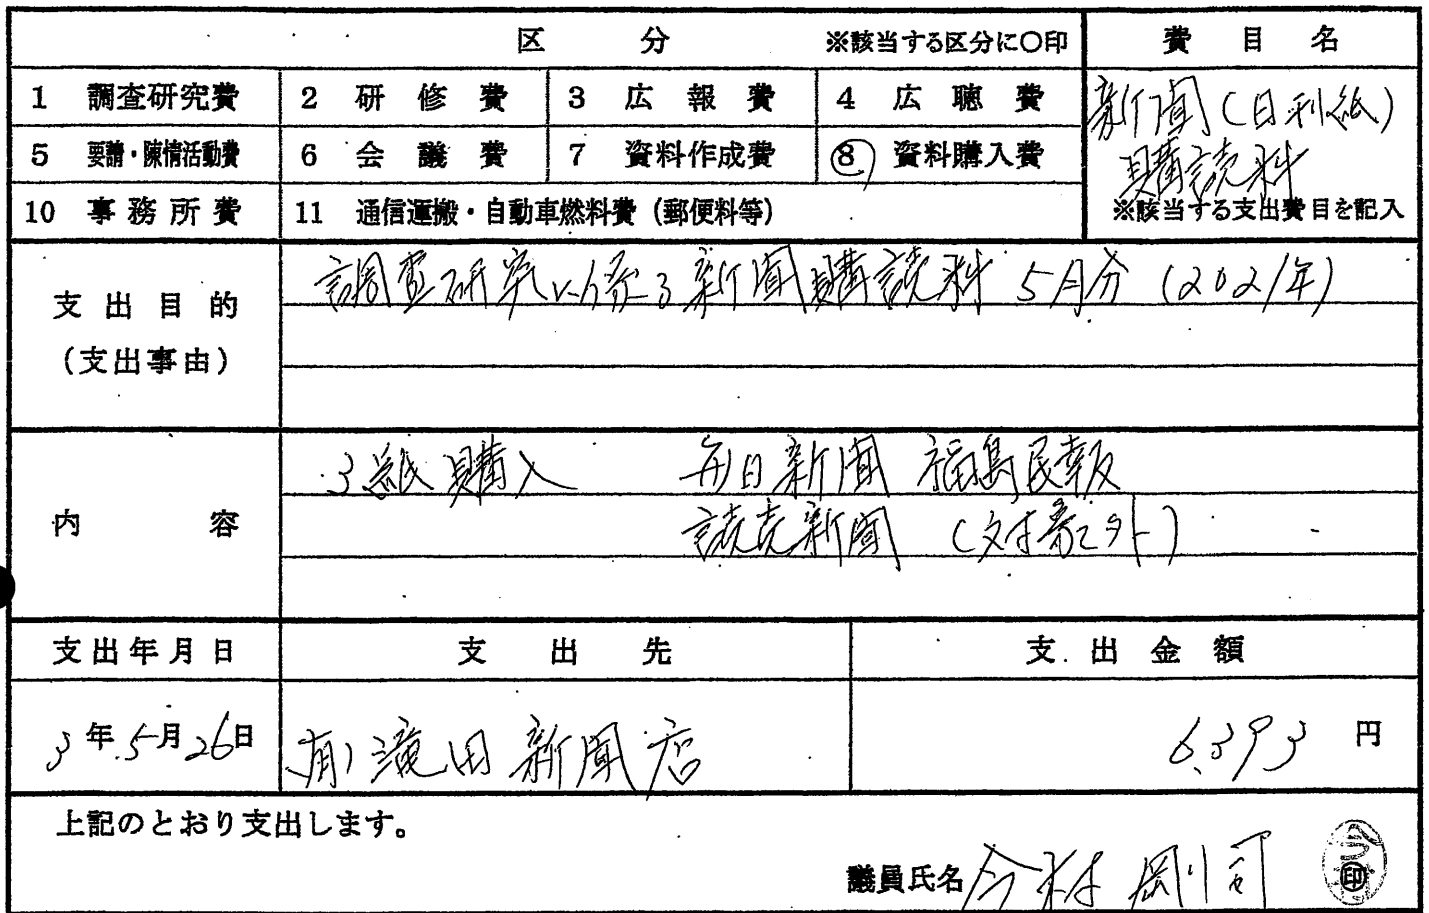 区 分 ※該当する区分に○印 費 目 名
1 調査研究費 2 研 修 費 3 広 報 費 4 広 聴 費
5 要請・陳情活動費 6 会 議 費 7 資料作成費 8 資料購入費
10 事 務 所 費 11 通信運搬・自動車燃料費(郵便料等)
新聞(日刊紙)
購読料
※該当する支出費目を記入
支 出 目 的
(支出事由)
調査研究に係る新聞購読料 5月分 (2021年)
内 容
3紙購入 毎日新聞 福島民報
読売新聞
支出年月日 支 出 先 支 出 金 額
3年 5月 26日 (有)滝田新聞店 6,393 円
上記のとおり支出します。
議員氏名 今村 剛司 印